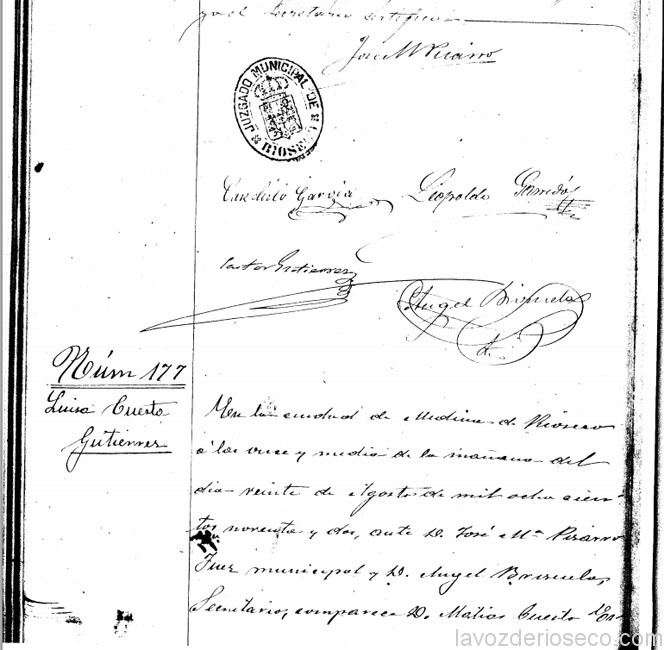 y el Secretario certifico
José Mª Pizarro
JUZGADO MUNICIPAL DE
RIOSE
Candido García
Leopoldo
Castor Gutierrez
Angel Brizuela
Núm 177
Luisa Cuesto
Gutiérrez
En la ciudad de Medina de Rioseco
á las once y media de la mañana del
dia veinte de Agosto de mil ocho cien-
tos noventa y dos, ante D. José Mª Pizarro
Juez municipal y D. Angel Brizuela,
Secretario, comparece D. Matias Cuesto
lavozderioseco.com